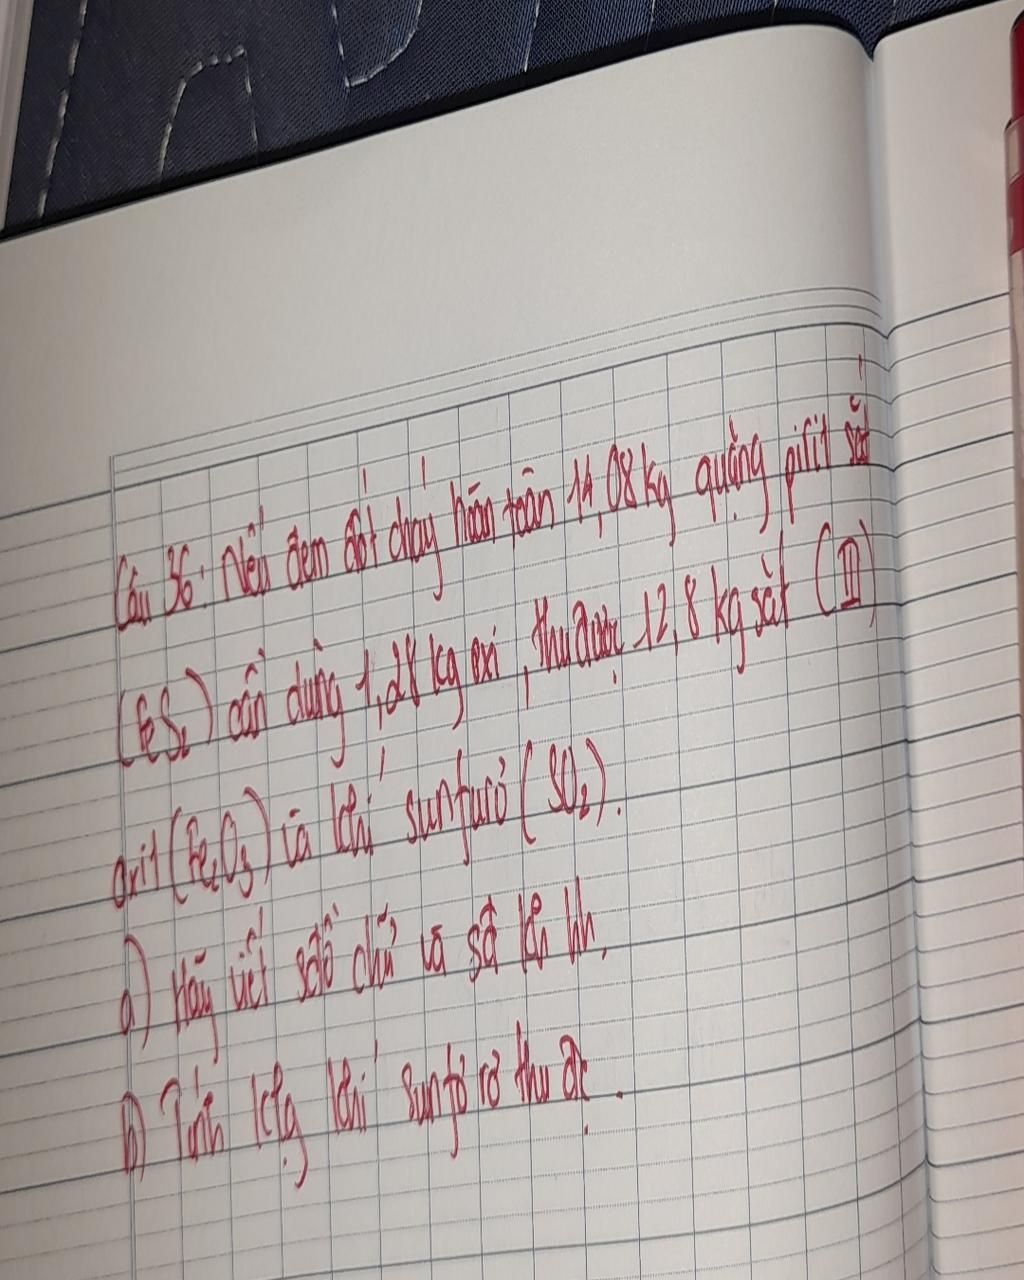 Câu 36: Nếu đem đốt cháy hoàn toàn 14,08 kg quặng pirit sắt
(FeS₂) cần dùng 1,28 kg oxi, thu được 12,8 kg sắt (III)
oxit (Fe₂O₃) và khí sunfurơ (SO₂).
a) Hãy viết sơ đồ chữ và sơ đồ hh.
b) Tính klg khí sunfơrơ thu đc.